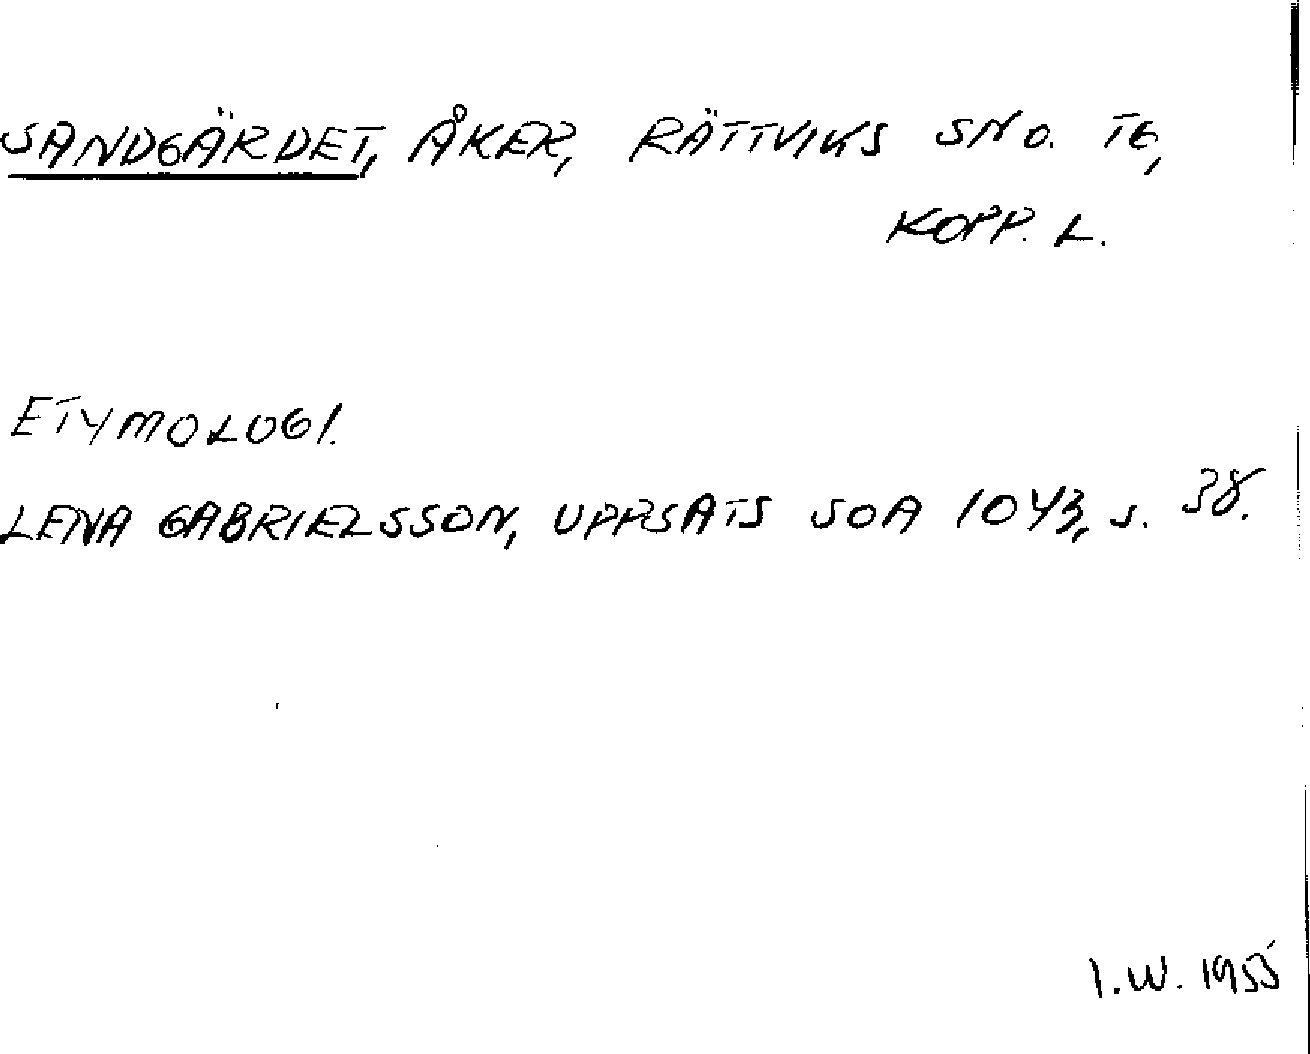 SANDGÄRDET, ÅKER, RÄTTVIKS SN O. TG,
KOPP. L.
ETYMOLOGI.
LENA GABRIELSSON, UPPSATS SOA 1043, S. 38.
I.W. 1955